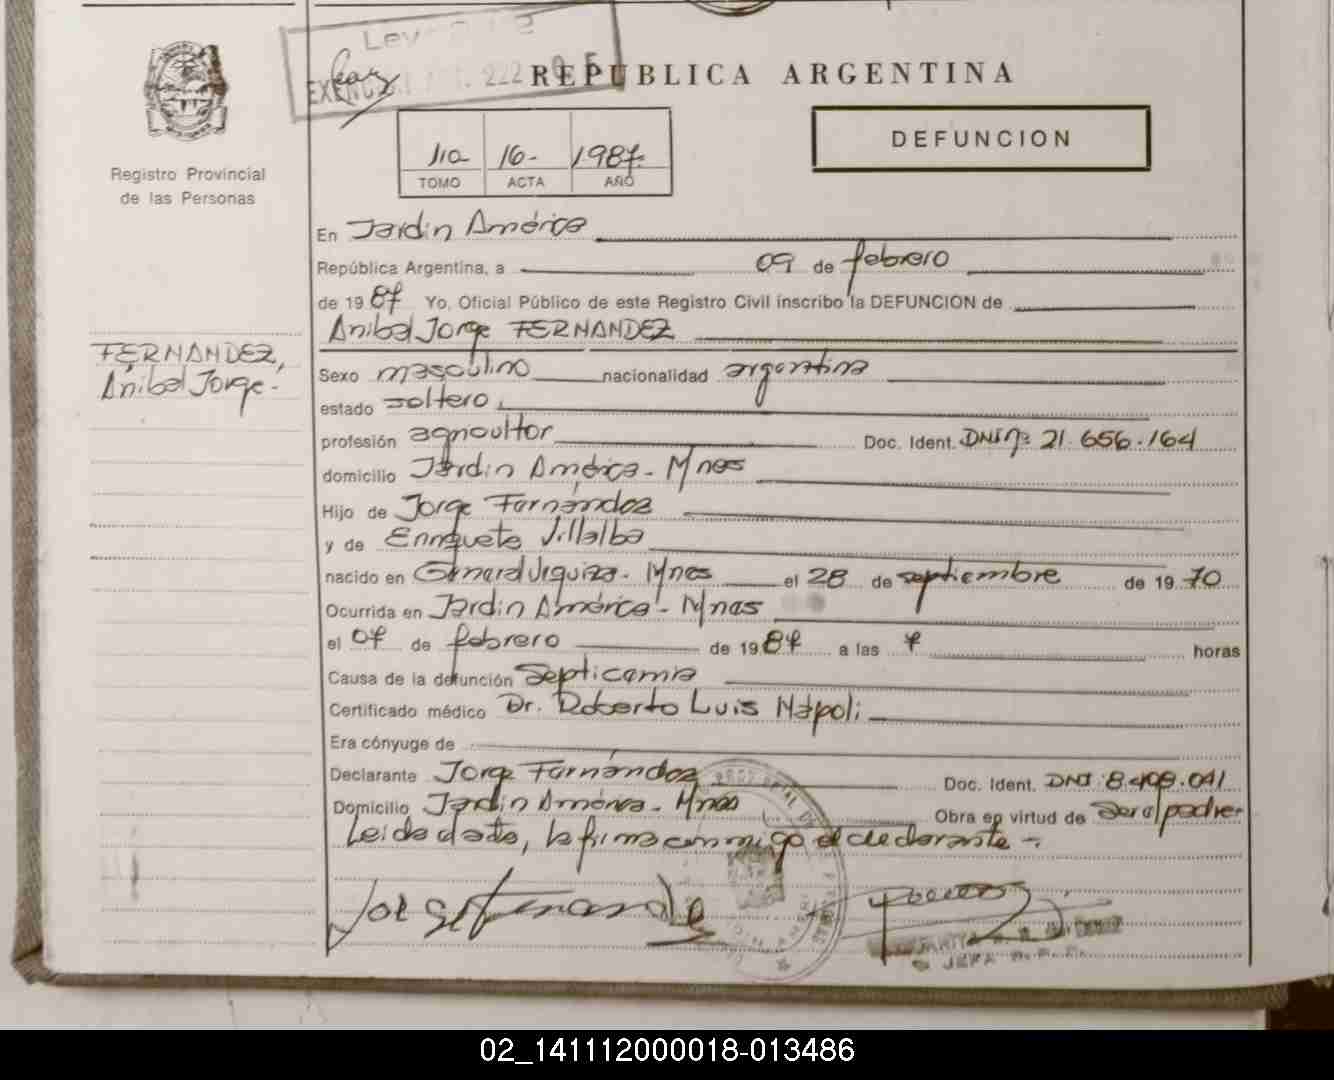 Ley
EXENC ART. 222
REPUBLICA ARGENTINA
DEFUNCION
Registro Provincial
de las Personas
110 16- 1987.
TOMO ACTA AÑO
En Jardin América
República Argentina, a 09 de febrero
de 1987 Yo, Oficial Público de este Registro Civil inscribo la DEFUNCION de
Anibal Jorge FERNANDEZ
FERNANDEZ,
Anibal Jorge.-
Sexo masculino nacionalidad argentina
estado soltero
profesión agricultor Doc. Ident. DNI nº 21.656.164
domicilio Jardin América - Mnes
Hijo de Jorge Fernández
y de Enriqueta Villalba
nacido en General Urquiza - Mnes el 28 de septiembre de 1970
Ocurrida en Jardin América - Mnas
el 07 de febrero de 1987 a las 7 horas
Causa de la defunción Septicemia
Certificado médico Dr. Roberto Luis Nápoli
Era cónyuge de
Declarante Jorge Fernández Doc. Ident. DNI 8.408.041
Domicilio Jardin América - Mnas Obra en virtud de ser el padre-
Leida el acta, la firma conmigo el declarante -.
Jorge Fernandez
JEFA
02_141112000018-013486